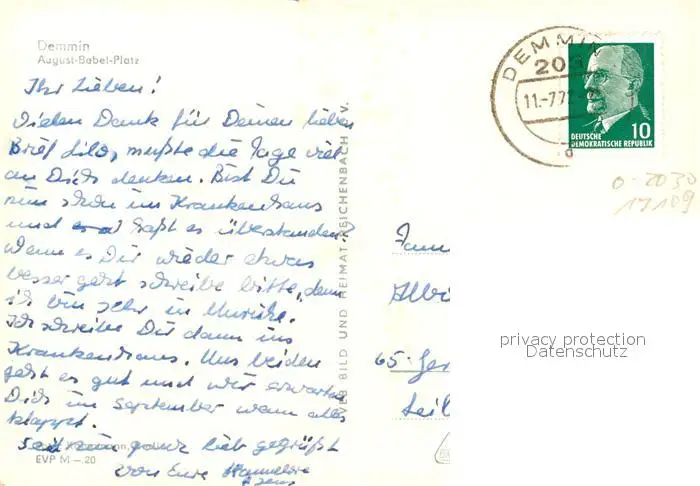 Demmin
August-Bebel-Platz
Ihr Lieben!
Vielen Dank für Deinen lieben
Brief Lilo, mußte die Tage viel
an Dich denken. Bist Du
nun schon im Krankenhaus
und hast es überstanden?
Wenn es Dir wieder etwas
besser geht schreibe bitte, denn
ich bin sehr in Unruhe.
Ich schreibe Dir dann ins
Krankenhaus. Uns beiden
geht es gut und wir erwarten
Dich im September wenn alles
klappt.
Seid nun ganz lieb gegrüßt
von Eure Hannelore
EVP M — 20
VEB BILD UND HEIMAT REICHENBACH V.
DEMMIN
11.-7.72
10
DEUTSCHE
DEMOKRATISCHE REPUBLIK
0-2030
17109
Fam
Albi
65 Ger
privacy protection
Datenschutz